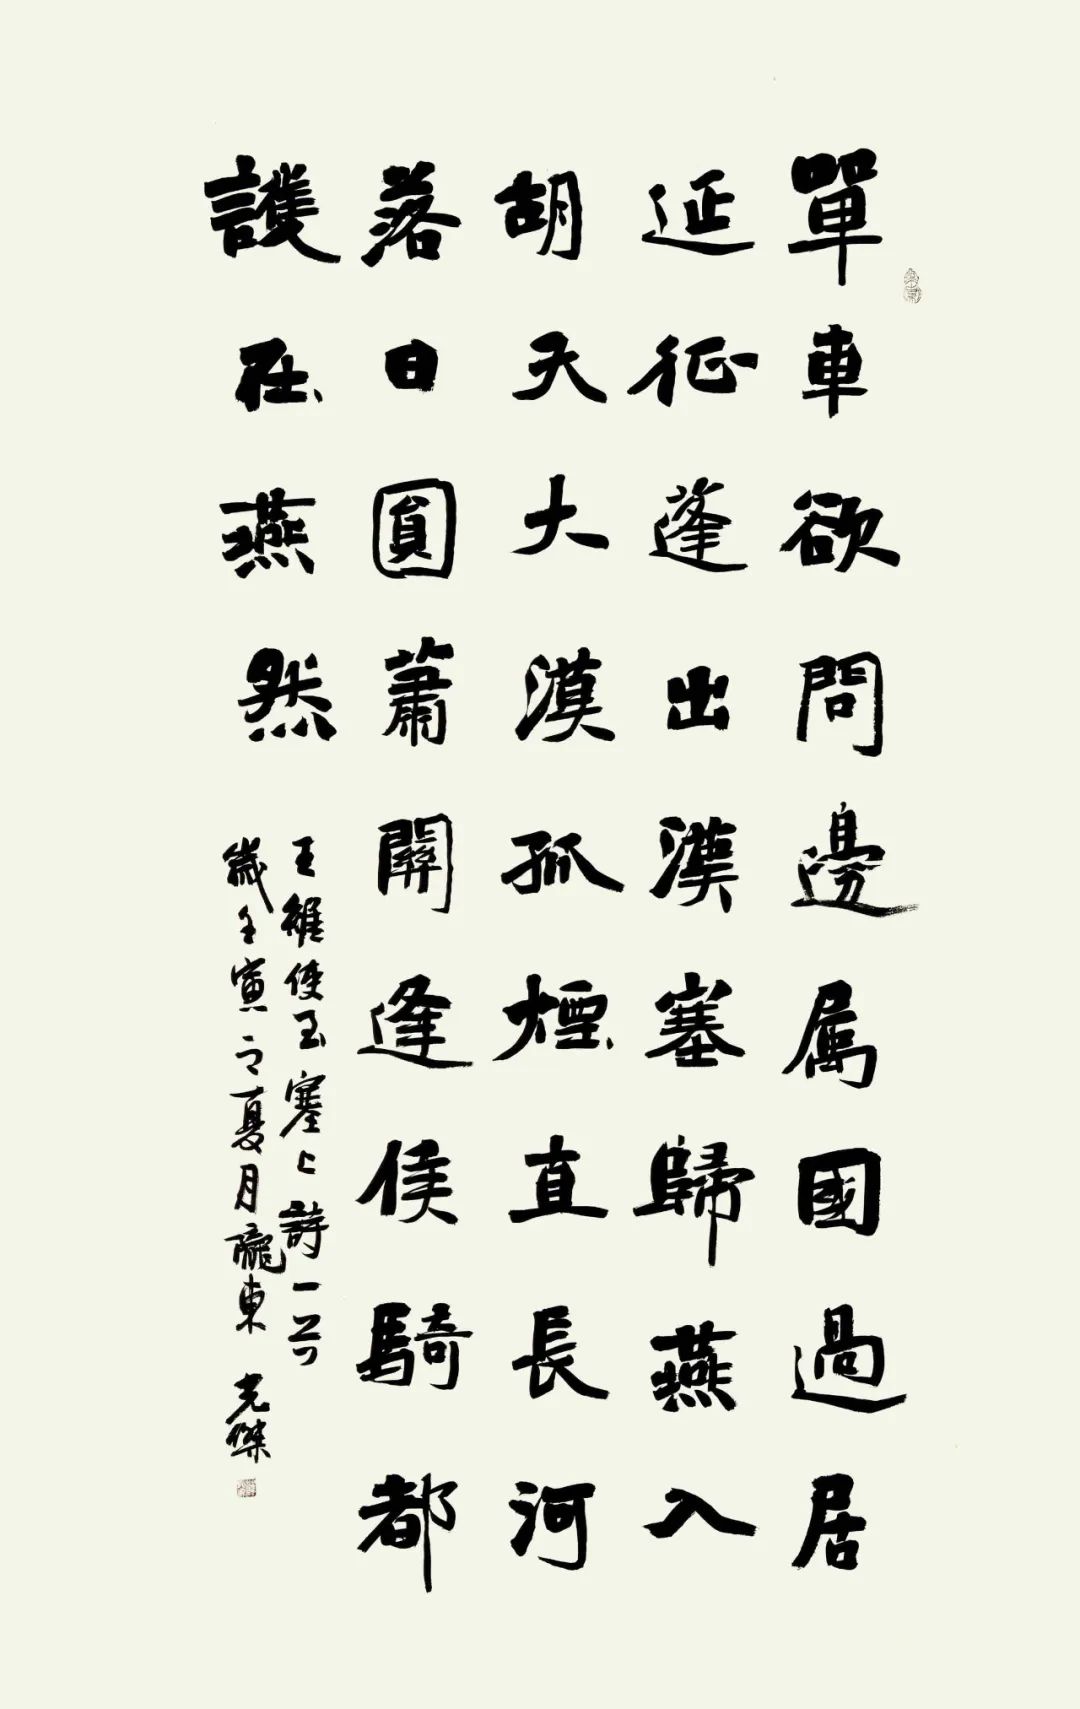 單車欲問邊属國過居
延征蓬出漢塞歸燕入
胡天大漠孤煙直長河
落日圓蕭關逢侯騎都
護在燕然
王維使至塞上詩一首
歲壬寅之夏月隴東 光傑